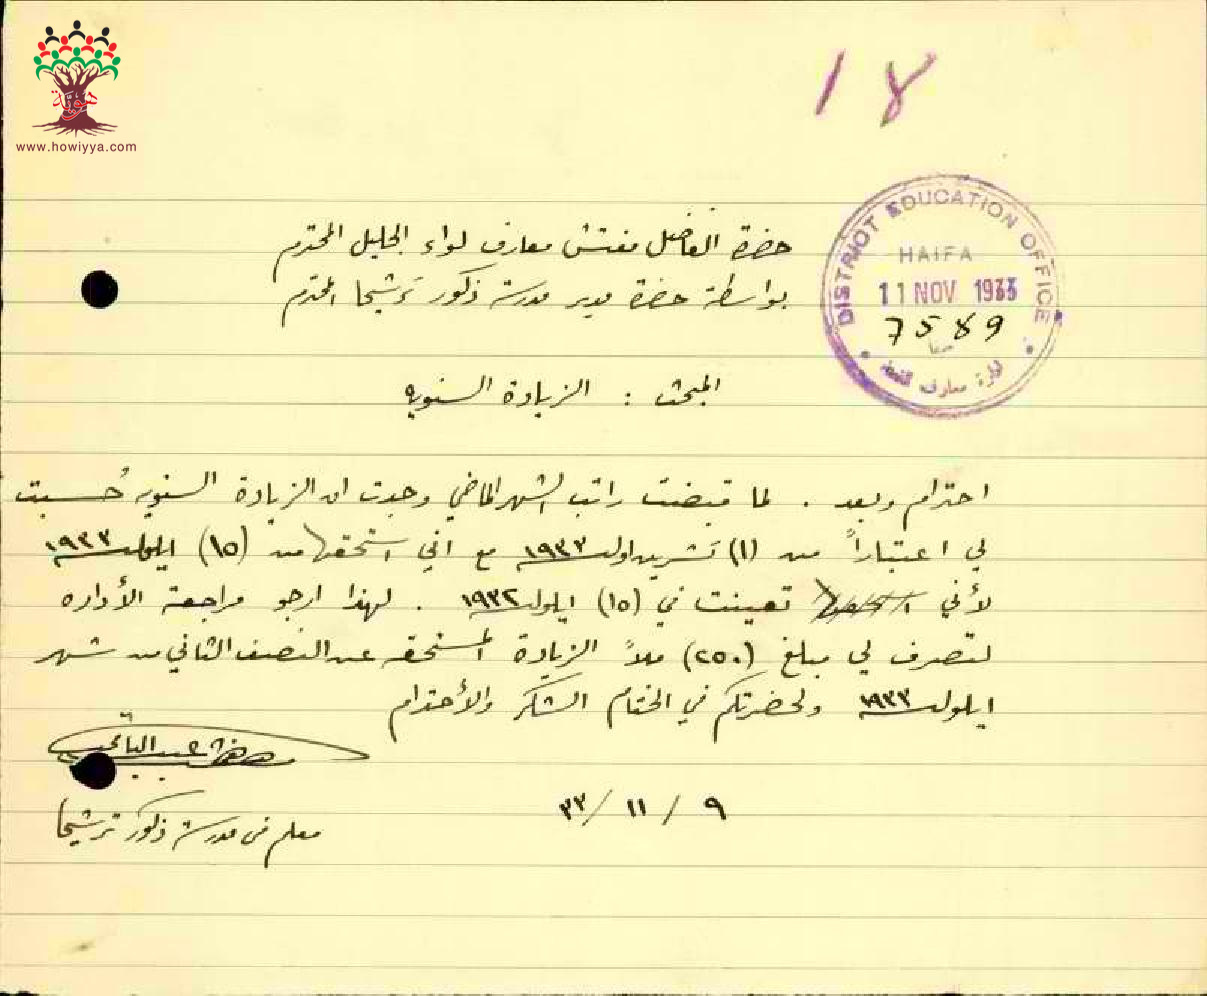 هوية
www.howiyya.com
18
DISTRICT EDUCATION OFFICE
HAIFA
11 NOV 1933
7589
حضرة الفاضل مفتش معارف لواء الجليل المحترم
بواسطة حضرة مدير مدرسة ذكور ترشيحا المحترم
المبحث : الزيادة السنويه
احترام وبعد . لما قبضت راتب الشهر الماضي وجدت ان الزيادة السنويه حُسبت
لي اعتباراً من (١) تشرين اول ١٩٣٣ مع اني استحقها من (١٥) ايلول ١٩٣٣
لأني تعينت في (١٥) ايلول ١٩٣٢ . لهذا ارجو مراجعة الأداره
لتصرف لي مبلغ (٢٥٠) ملاً الزيادة المستحقه عن النصف الثاني من شهر
ايلول ١٩٣٣ ولحضرتكم في الختام الشكر والأحترام
عبد
٩ / ١١ / ٣٣
معلم في مدرسة ذكور ترشيحا